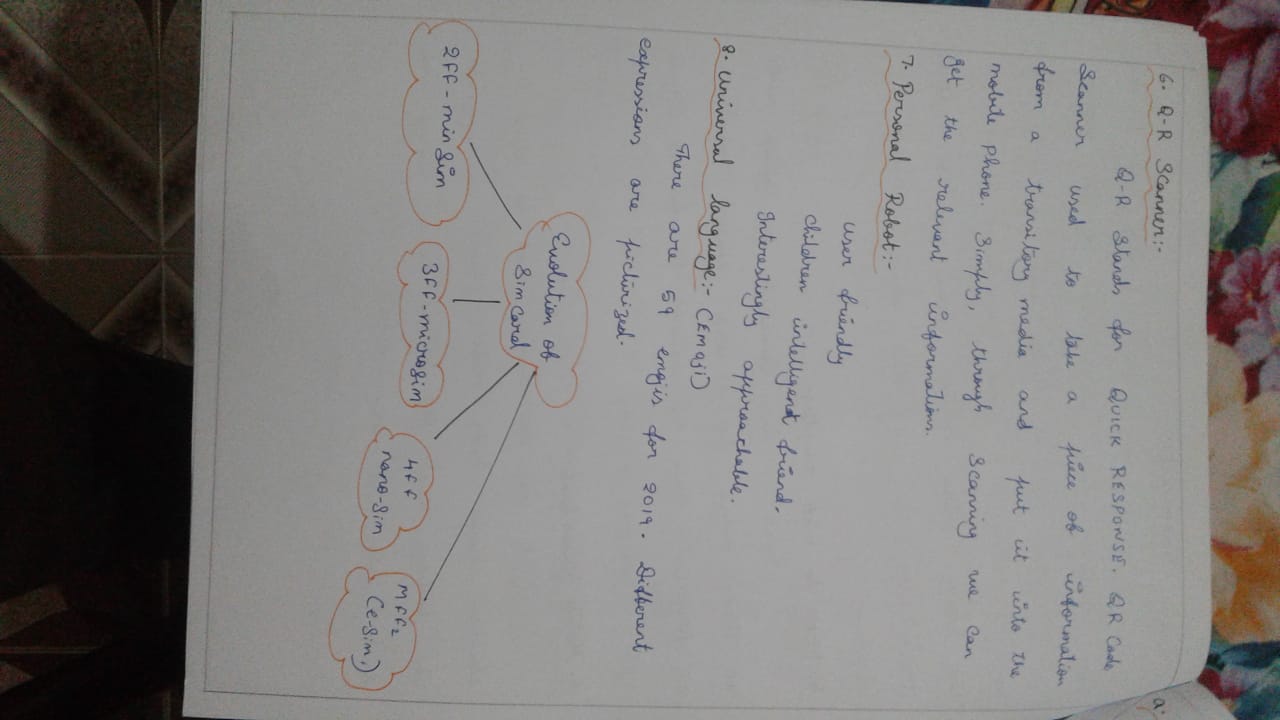 6. Q-R Scanner:-
Q-R Stands for QUICK RESPONSE. QR Code
Scanner used to take a piece of information
from a transitory media and put it into the
mobile phone. Simply, through scanning we can
get the relevent informations.
7. Personal Robot:-
User friendly
children intelligent friend.
Interestingly approachable.
8. Universal language:- (Emoji)
There are 59 emojis for 2019. Different
expressions are picturized.
Evolution of
Simcard
2FF-minsim
3FF-microsim
4FF
nano-sim
MFF2
(e-sim,)
a.